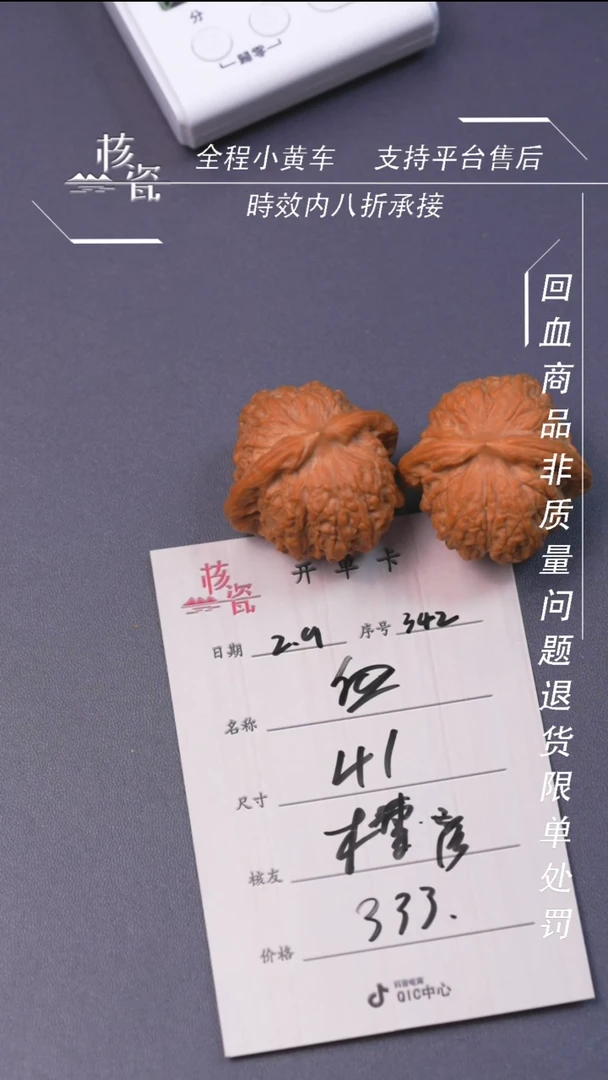 分
「零醒」
核瓷
全程小黄车 支持平台售后
時效内八折承接
回血商品非质量问题退货限单处罚
核瓷
开单卡
日期 2.9 序号 342
名称
尺寸 41
核友
价格 333.
抖音电商
QIC中心